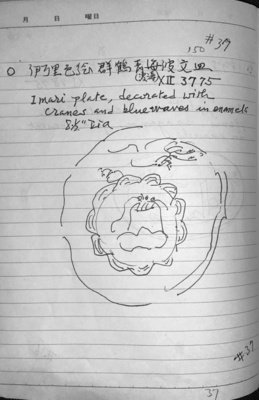 月 日 曜日
#37
150
○ 伊万里色絵群鶴青海波文皿
XII 3775
Imari plate, decorated with
cranes and blue waves in enamels
Dia
#37
37